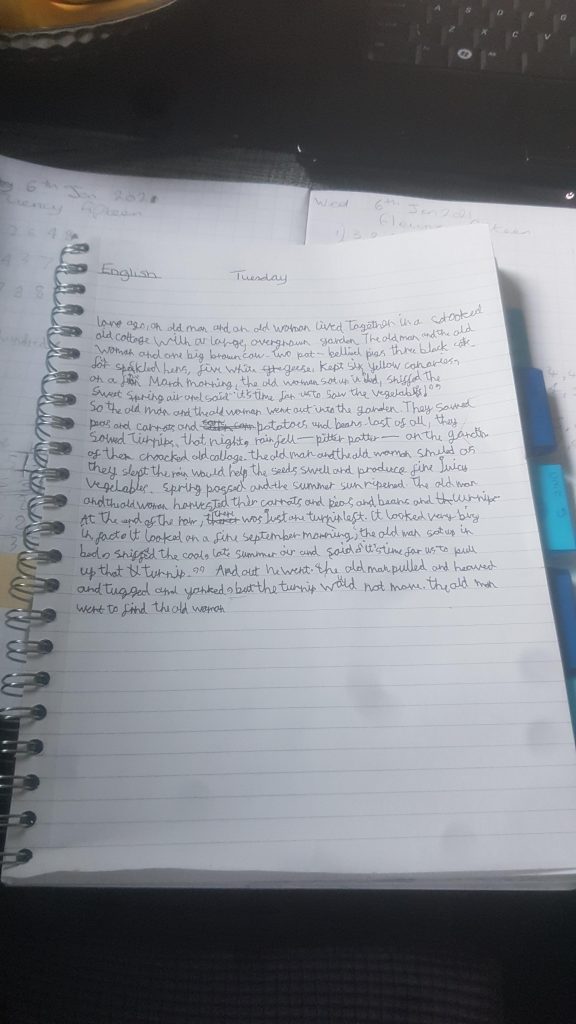 6th Jan 2021
Wed 6th Jan 2021
English Tuesday
long ago, an old man and an old woman lived together in a crooked
old cottage with a large, overgrown garden. The old man and the old
woman and one big brown cow. two pot-bellied pigs three black cats
fot speckled hens, five white geese. Kept six yellow canaries,
on a fin March morning, the old woman sat up in bed, sniffed the
Sweet spring air and said "it's time for us to sow the vegetables!"
So the old man and the old woman went out into the garden. They sowed
peas and carrots and potatoes and beans last of all, they
sowed turnips, that night, rain fell — pitter patter — on the garden
of then croocked old collage. the old man and the old woman smiled as
they slept the rain would help the seeds swell and produce fine juicy
vegetables. Spring passed and the summer sun ripened. The old man
and the old woman harvested thier carrots and peas and beans and turnips
At the end of the row, there was just one turnip left. it looked very big
in fact it looked on a fine september morning, the old man sat up in
bed, sniffed the cool, late summer air and said "it's time for us to pull
up that turnip." And out he went. the old man pulled and heaved
and tugged and yanked, but the turnip would not move. the old man
went to find the old woman